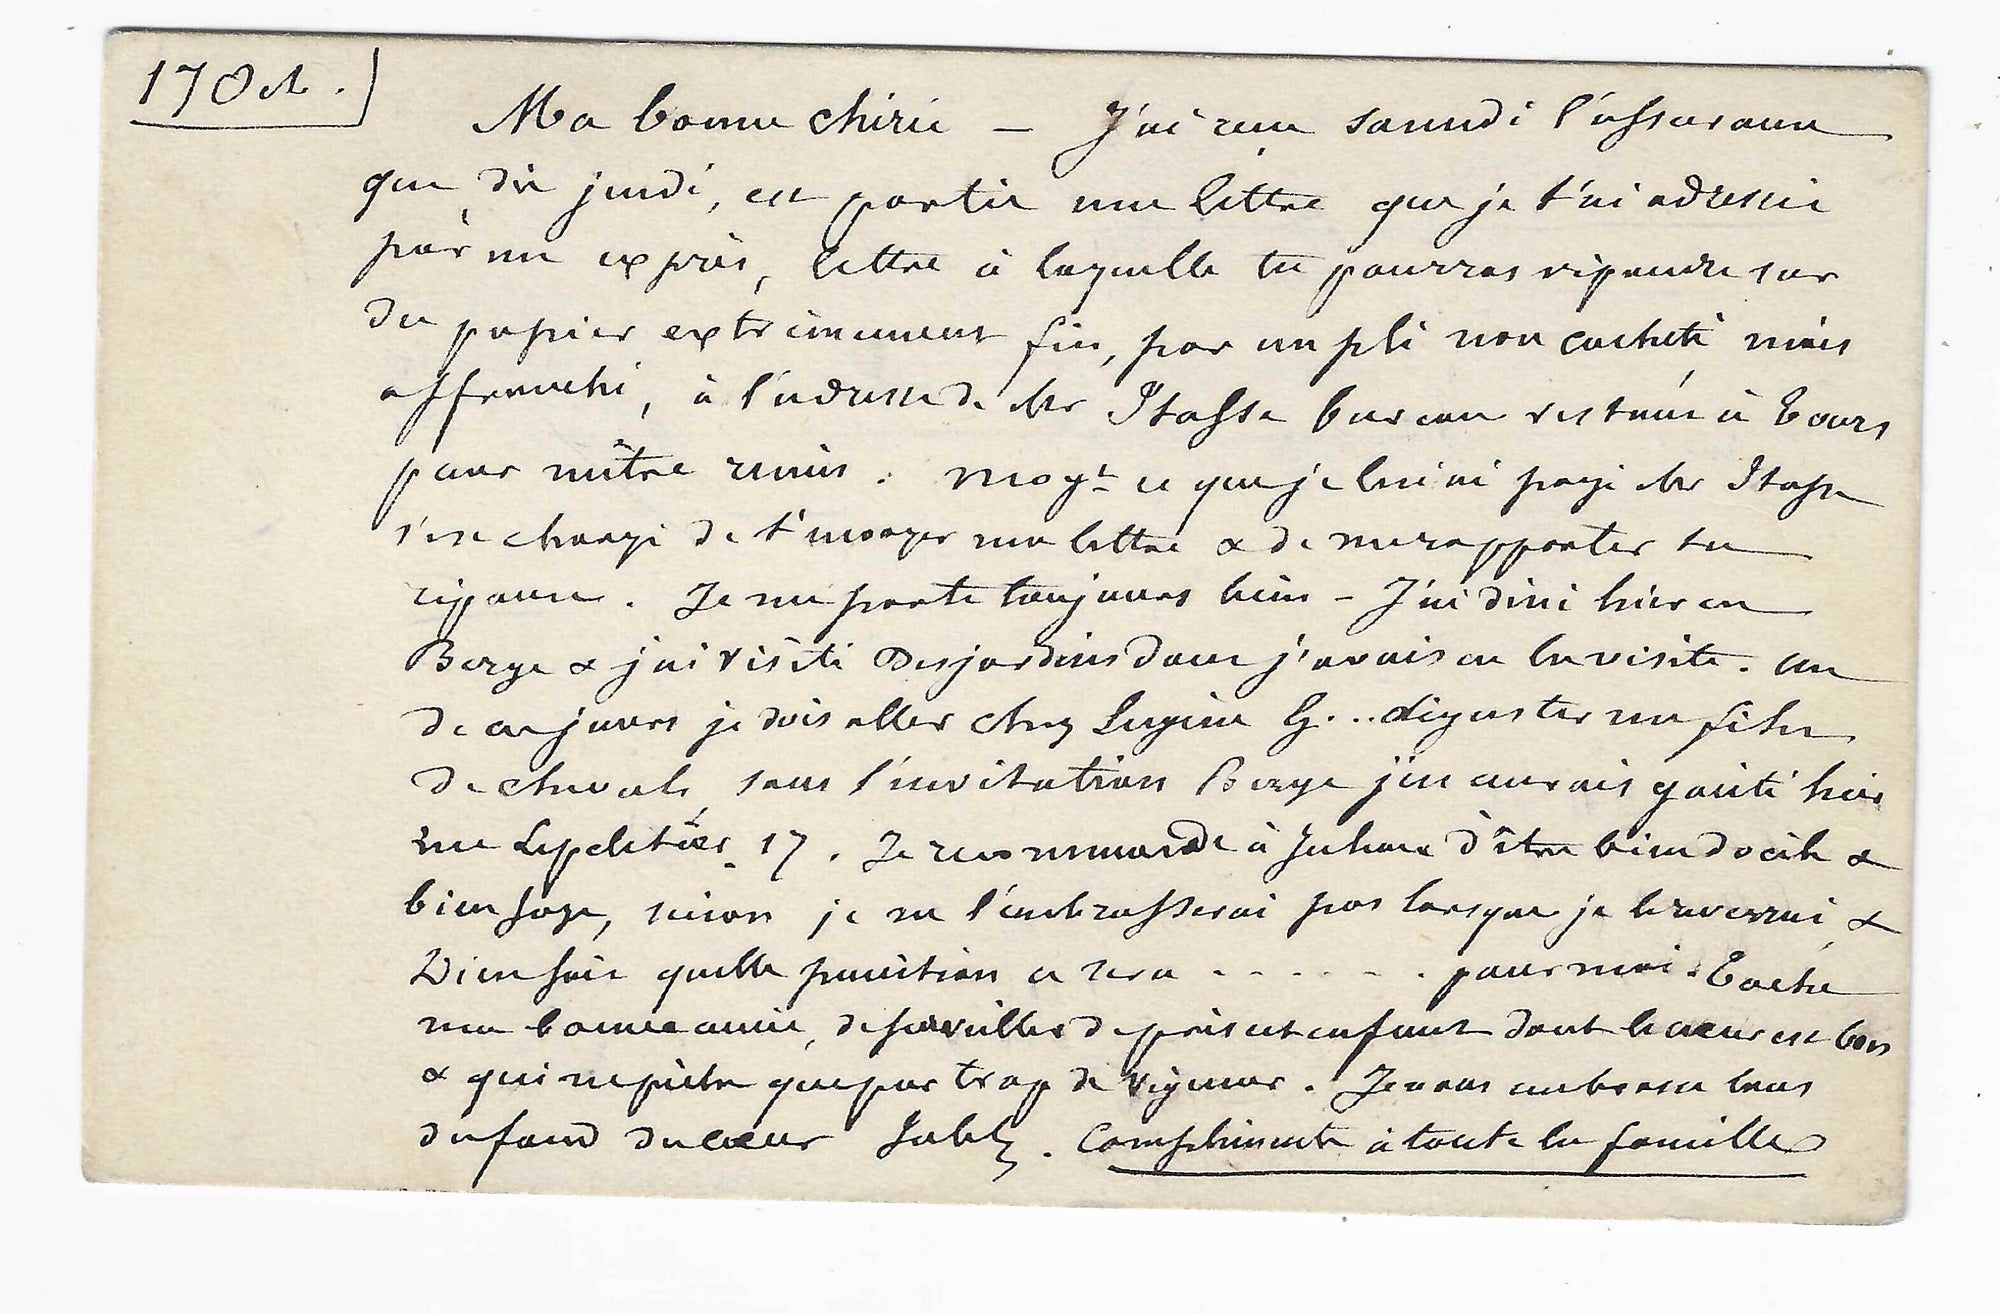 17 Oct.
Ma bonne chérie — J'ai reçu samedi l'assurance
que, dès jeudi, est partie une lettre que je t'ai adressée
par un exprès, lettre à laquelle tu pourras répondre sur
du papier extrêmement fin, par un pli non cacheté mais
affranchi, à l'adresse de Mr Itasse bureau restant à Tours
pour m'être remis. Moyt ce que je lui ai payé Mr Itasse
s'est chargé de t'envoyer ma lettre & de me rapporter ta
réponse. Je me porte toujours bien — J'ai diné hier en
Berge & j'ai visité Desjardins dont j'avais eu la visite. Un
de ces jours je dois aller chez Eugène G... déguster un filet
de cheval, sans l'invitation Berge j'en aurais goûté hier
rue Lepeletier 17. Je recommande à d'être bien docile &
bien sage, sinon je ne l'embrasserai pas lorsque je la reverrai, &
Dieu sait quelle punition ce sera . . . . . . pour moi. Tâche
ma bonne amie, de surveiller de près cet enfant dont le cœur est bon
& qui ne pèche que par trop de vigueur. Je vous embrasse tous
du fond du cœur . Compliments à toute la famille